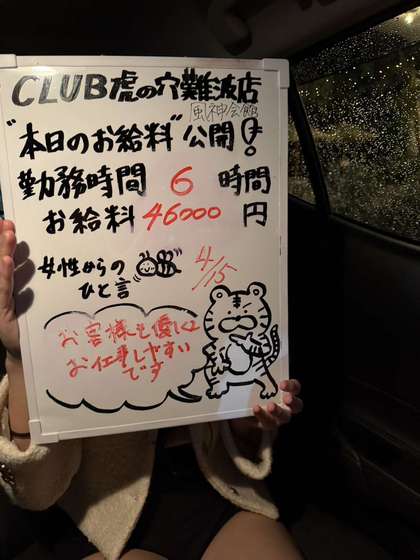 CLUB虎の穴難波店
風神会館
"本日のお給料"公開!
勤務時間 6 時間
お給料 46000 円
女性からの
ひと言
4/15
お客様も優しく
お仕事しやすい
です